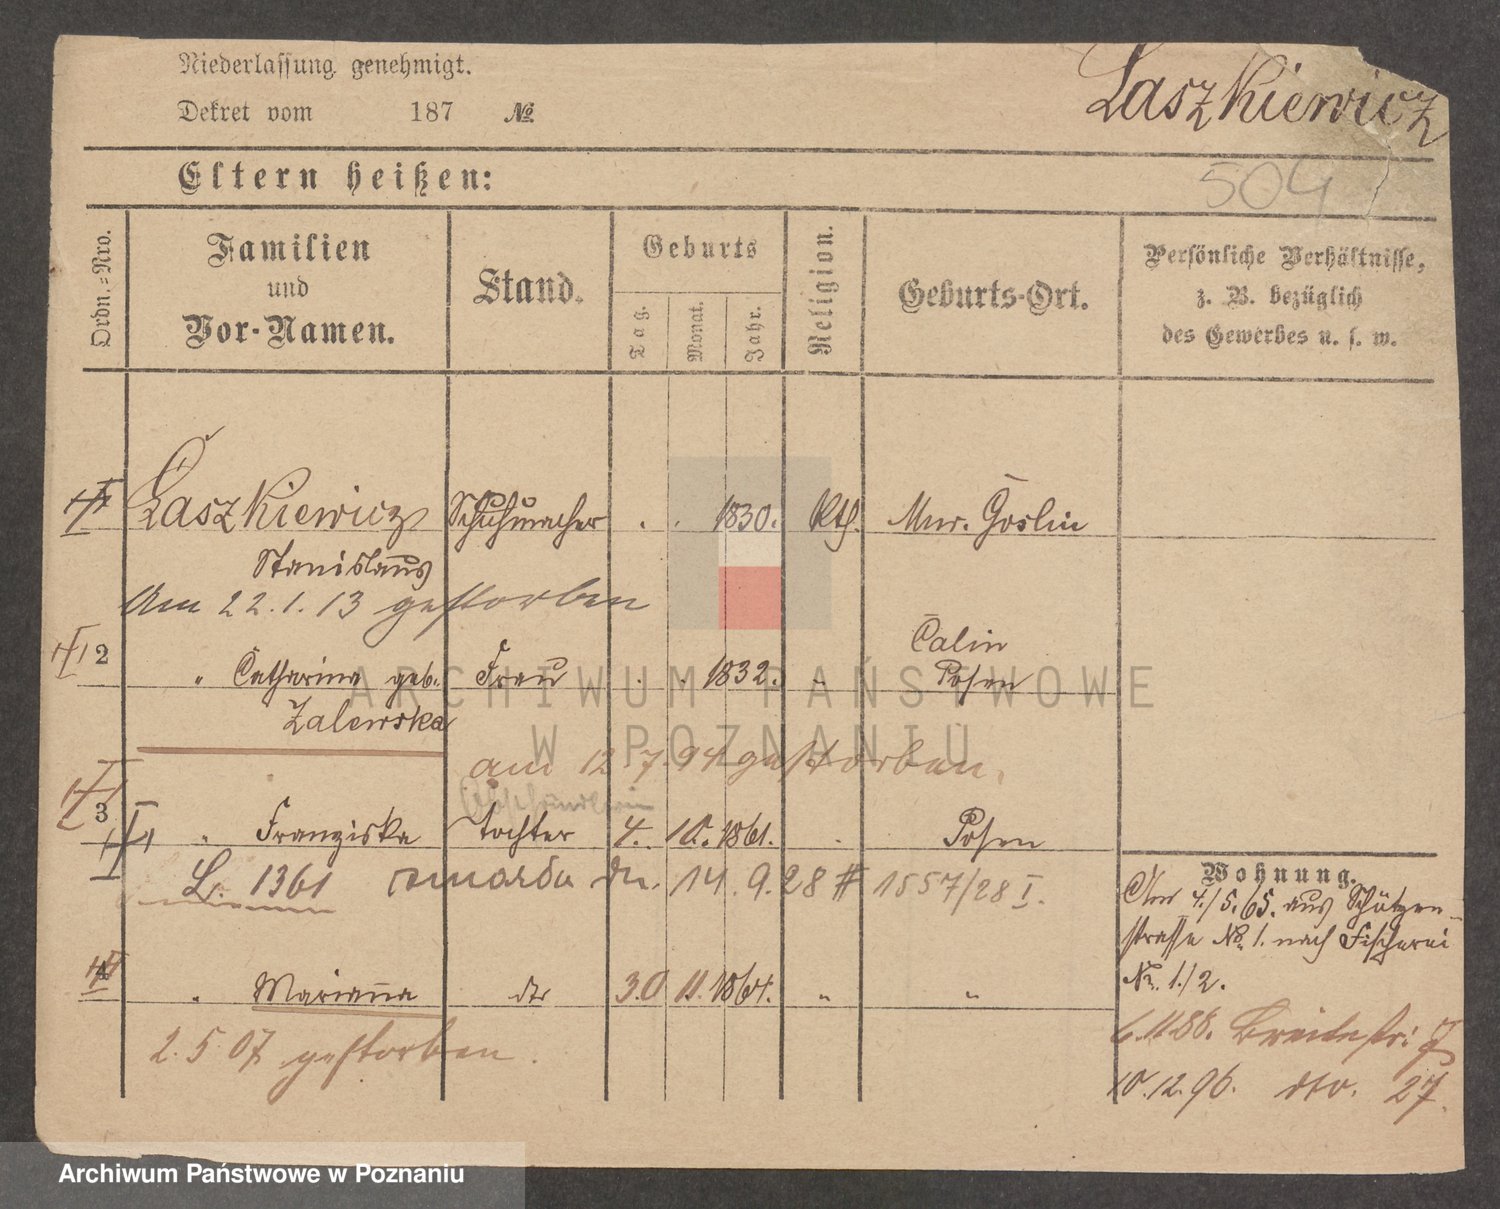 Niederlassung genehmigt.
Dekret vom 187 №
Laszkiewicz
504
Eltern heißen:
Ordn.-Nro.
Familien
und
Vor-Namen.
Stand.
Geburts
Tag.
Monat.
Jahr.
Religion.
Geburts-Ort.
Persönliche Verhältnisse,
z. B. bezüglich
des Gewerbes u. s. w.
Laszkiewicz Schuhmacher . . 1830. Kth. Mur. Goslin
Stanislaus
Am 22.1.13 gestorben
2 " Catharina geb. Frau . . 1832. " Posen
Zalewska
am 12 7. 94 gestorben.
3 " Franziska Tochter 4. 10. 1861. . Posen
L. 1361 zmarła dn. 14. 9. 28 # 1557/28 I.
4 " Marianna dto 30 11. 1864. " "
2. 5 07 gestorben.
Wohnung.
Am 4./5. 65. aus Schützen-
strasse No. 1. nach Fischerei
No. 1/2.
6.11.88. Breitestr: 7
10.12.96. dto. 27.
ARCHIWUM PAŃSTWOWE
W POZNANIU
Archiwum Państwowe w Poznaniu